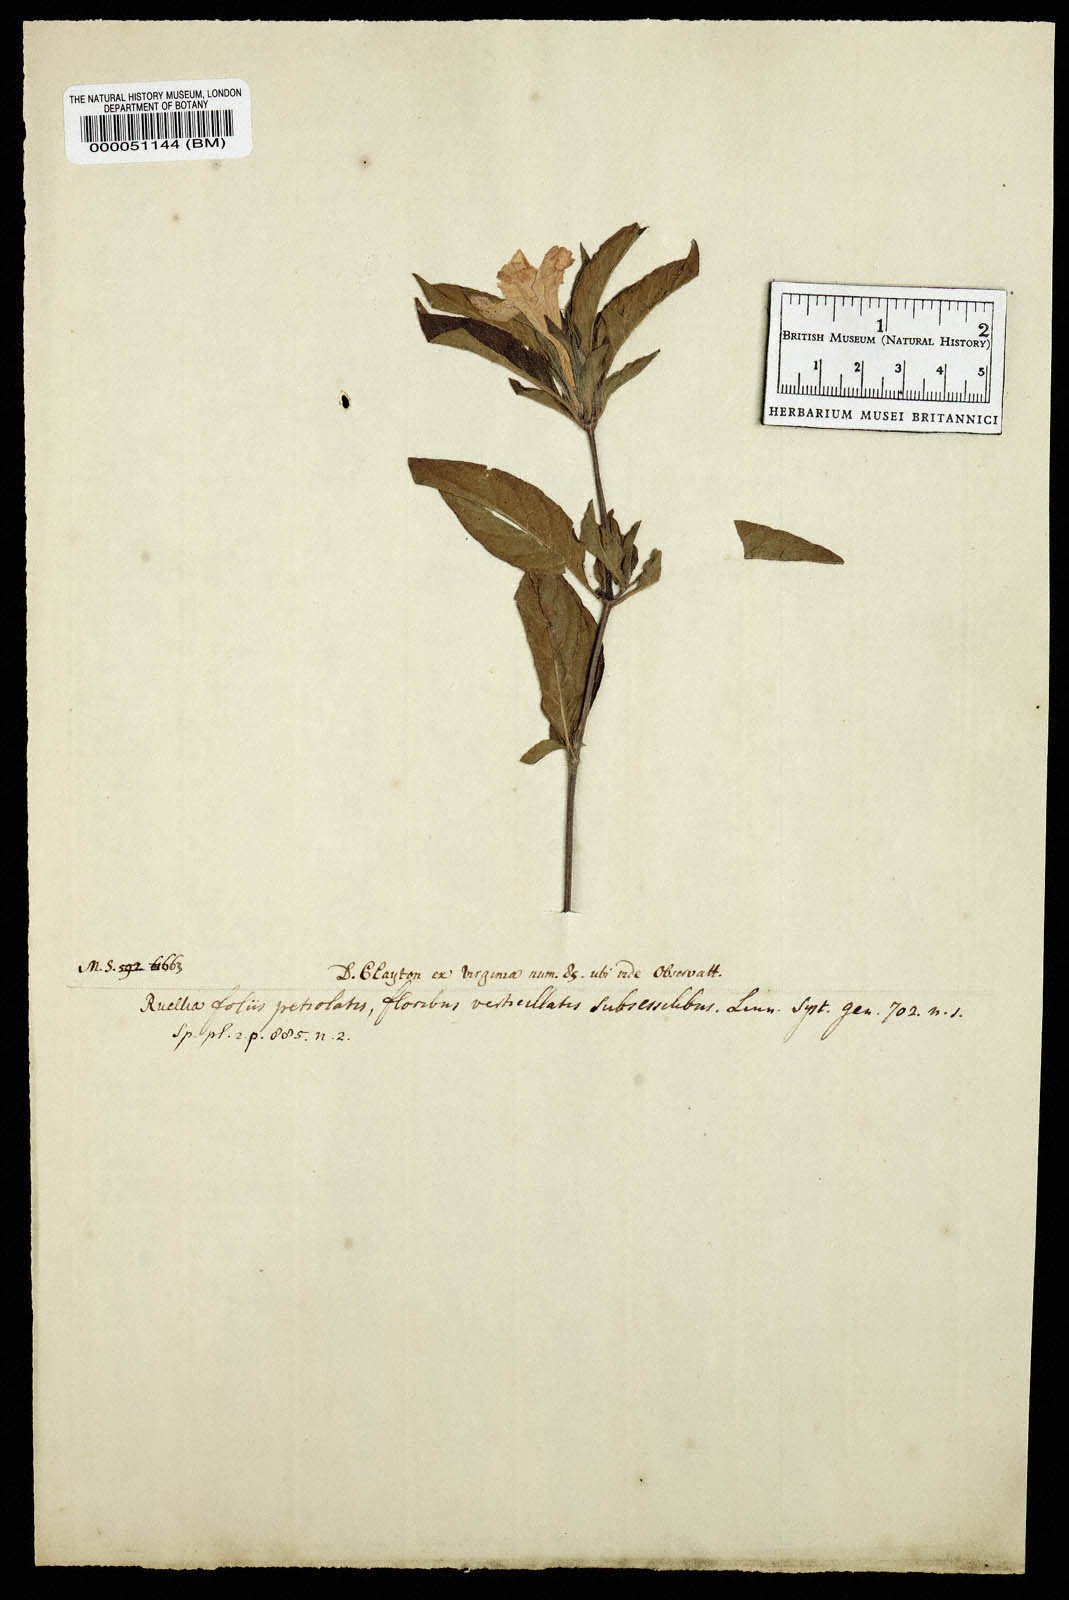 THE NATURAL HISTORY MUSEUM, LONDON
DEPARTMENT OF BOTANY
000051144 (BM)
1 2
BRITISH MUSEUM (NATURAL HISTORY)
1 2 3 4 5
HERBARIUM MUSEI BRITANNICI
M. S. 592 6663
D. Clayton ex Virginia num. 85. ubi vide Observatt.
Ruellia foliis petiolatis, floribus verticillatis subsessilibus. Linn. Syst. gen. 702. n. 1.
Sp. pl. 2. p. 885. n. 2.